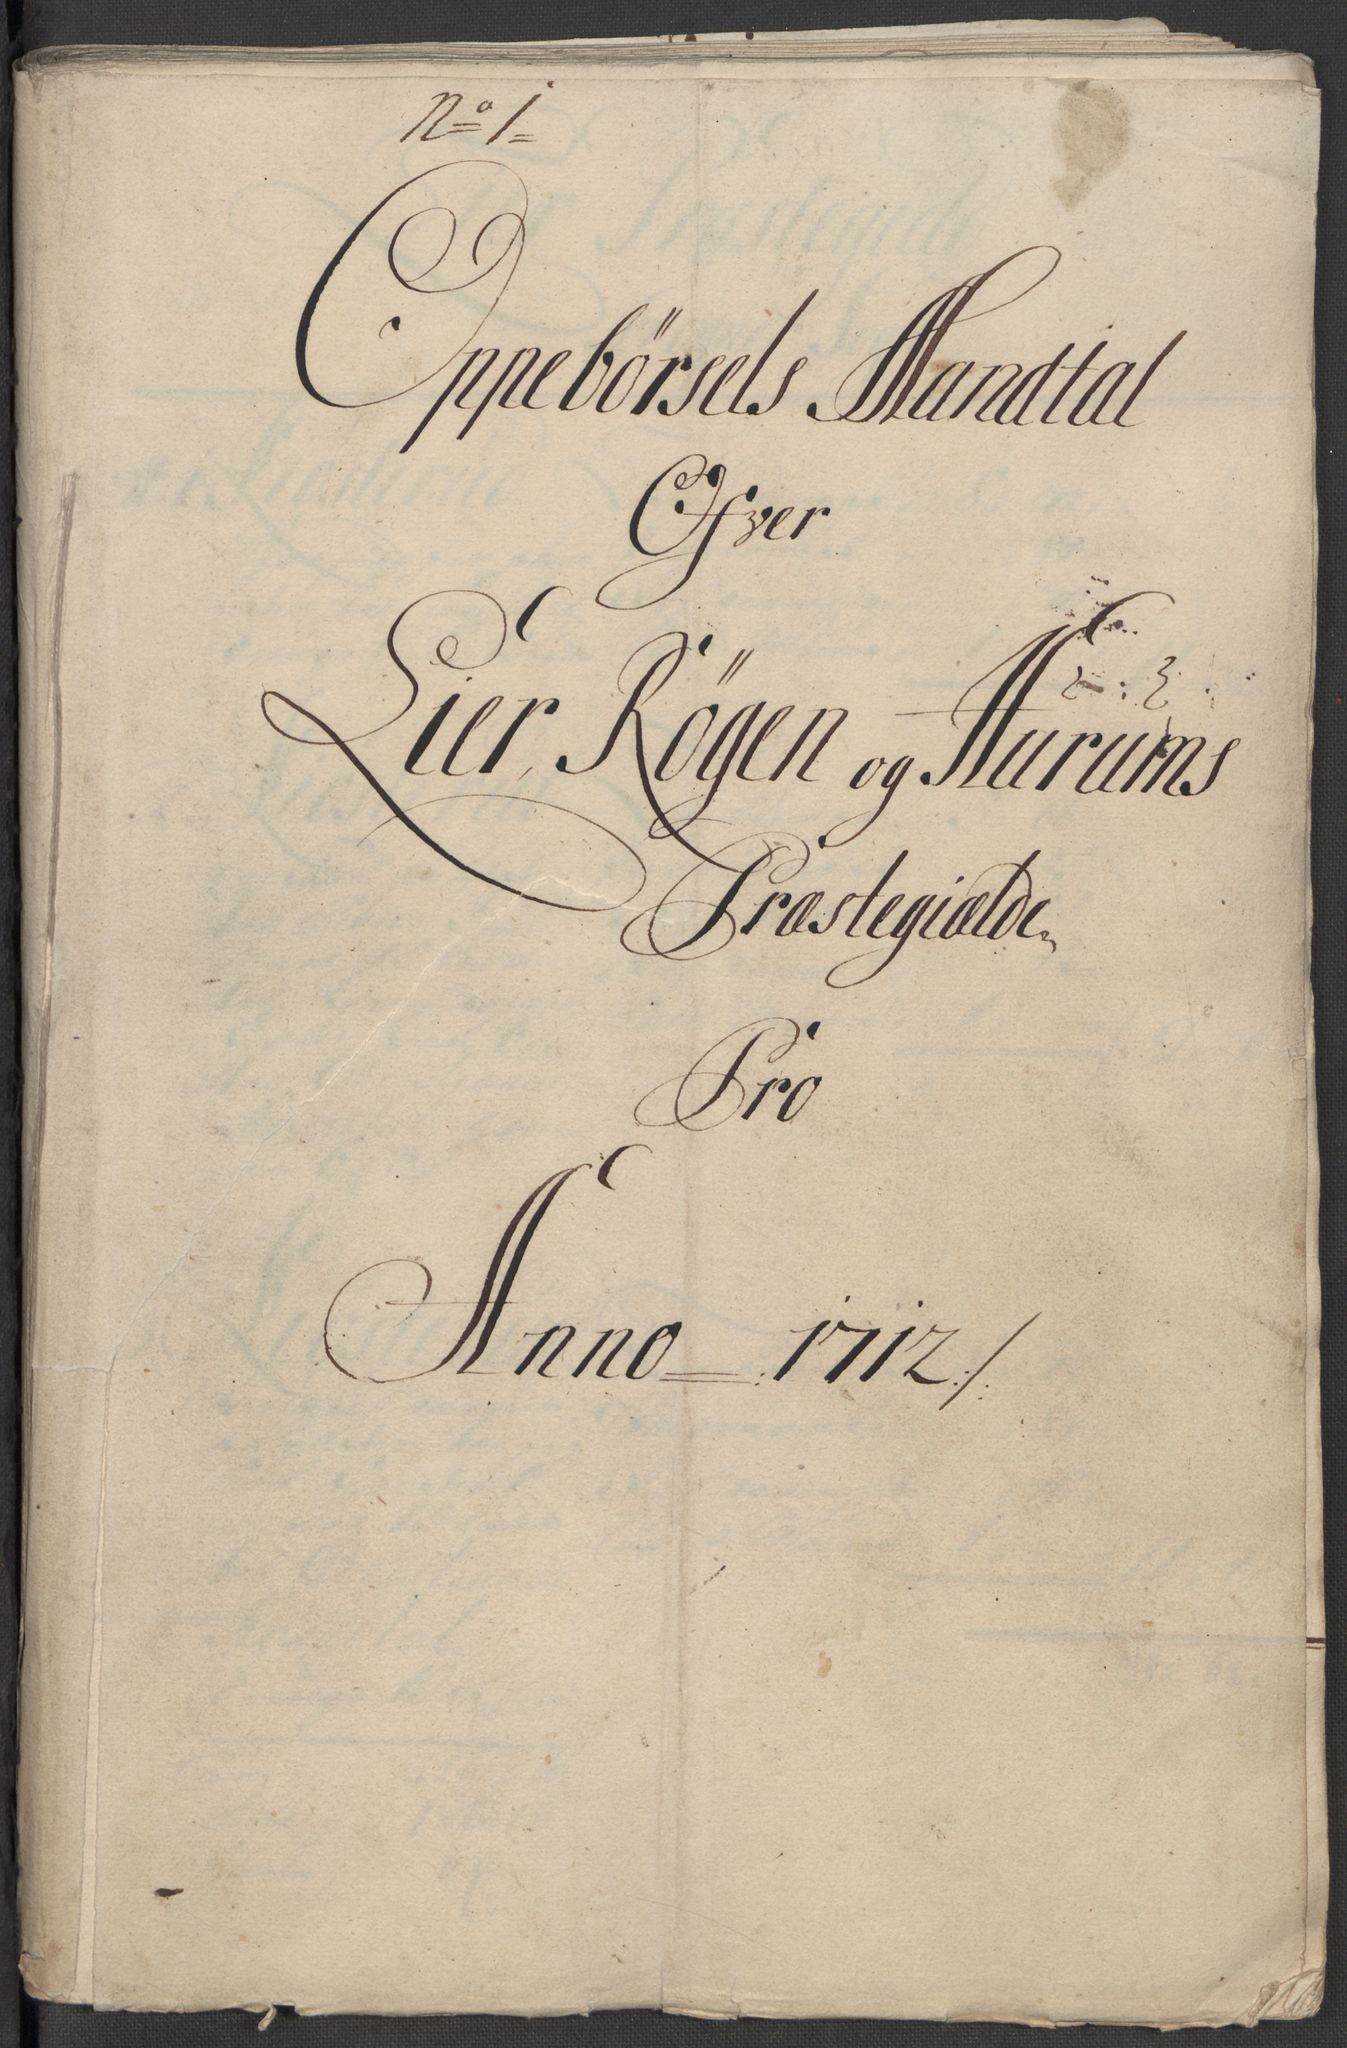 No 1
Oppebörsels Mandtal
Ofver
Lier, Rögen og Hurums
Præstegiælde
Pro
Anno 1712/